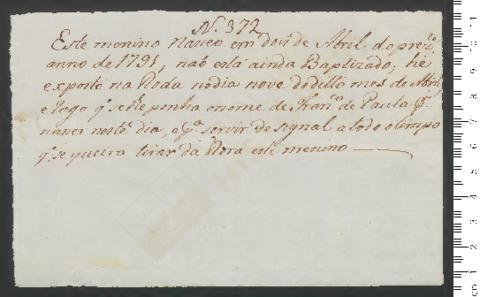 N. 372
Este menino Naseo em dois de Abril do prezte.
anno de 1791, naõ está ainda Baptizado, he
exposto na Roda no dia nove do dillo mes de Abril
e logo q. se lhe ponha o nome de Franco. de Paula
nascer neste dia, e pa. servir de signal a todo o tempo
q. se queira tirar da Rora este menino